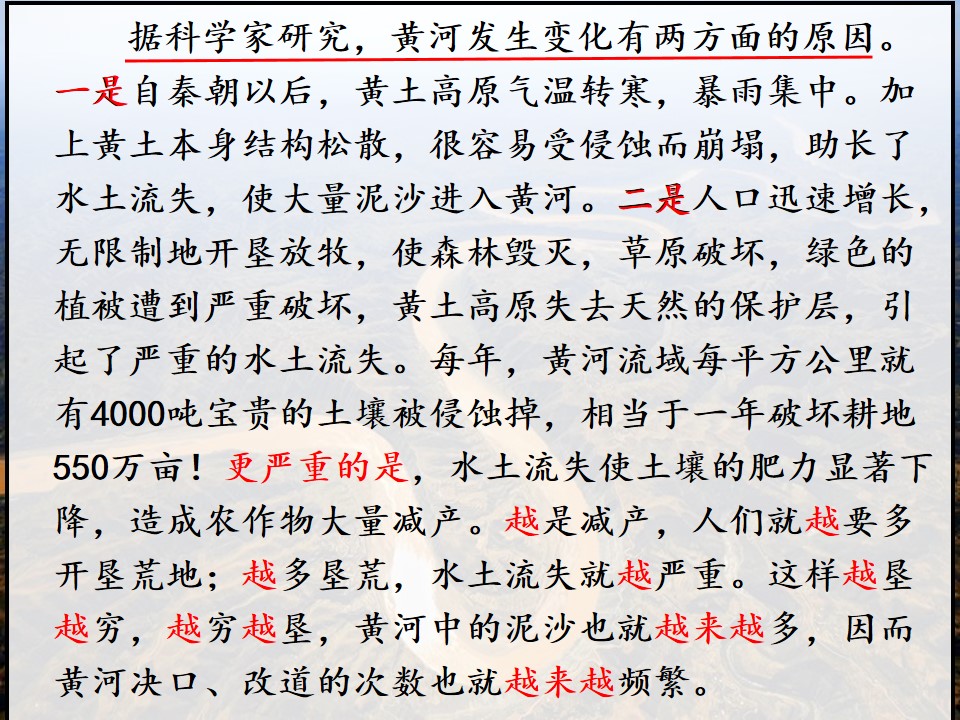 据科学家研究，黄河发生变化有两方面的原因。
一是自秦朝以后，黄土高原气温转寒，暴雨集中。加
上黄土本身结构松散，很容易受侵蚀而崩塌，助长了
水土流失，使大量泥沙进入黄河。二是人口迅速增长，
无限制地开垦放牧，使森林毁灭，草原破坏，绿色的
植被遭到严重破坏，黄土高原失去天然的保护层，引
起了严重的水土流失。每年，黄河流域每平方公里就
有4000吨宝贵的土壤被侵蚀掉，相当于一年破坏耕地
550万亩！更严重的是，水土流失使土壤的肥力显著下
降，造成农作物大量减产。越是减产，人们就越要多
开垦荒地；越多垦荒，水土流失就越严重。这样越垦
越穷，越穷越垦，黄河中的泥沙也就越来越多，因而
黄河决口、改道的次数也就越来越频繁。